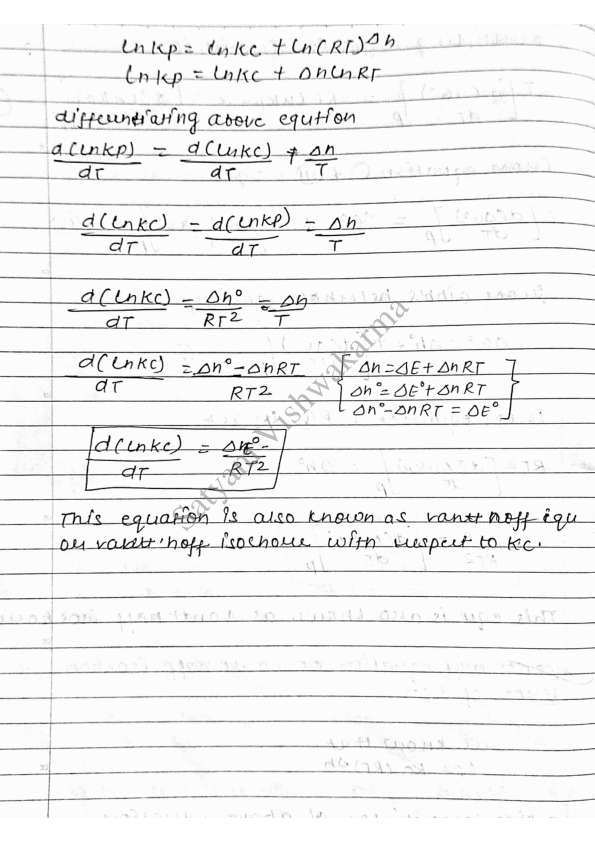 lnKp = lnKc + ln(RT)^Δn
lnKp = lnKc + ΔnlnRT
differentiating above eqution
d(lnKp)/dT = d(lnKc)/dT + Δn/T
d(lnKc)/dT = d(lnKp)/dT = Δn/T
d(lnKc)/dT = Δn°/RT2 = Δn/T
d(lnKc)/dT = Δn°-ΔnRT/RT2 [Δn = ΔE + ΔnRT
Δn° = ΔE° + ΔnRT
Δn°-ΔnRT = ΔE°]
d(lnKc)/dT = ΔE°/RT2
This equation is also known as vantt hoff equ
or vantt'hoff isochore with respect to Kc.
Satyam Vishwakarma